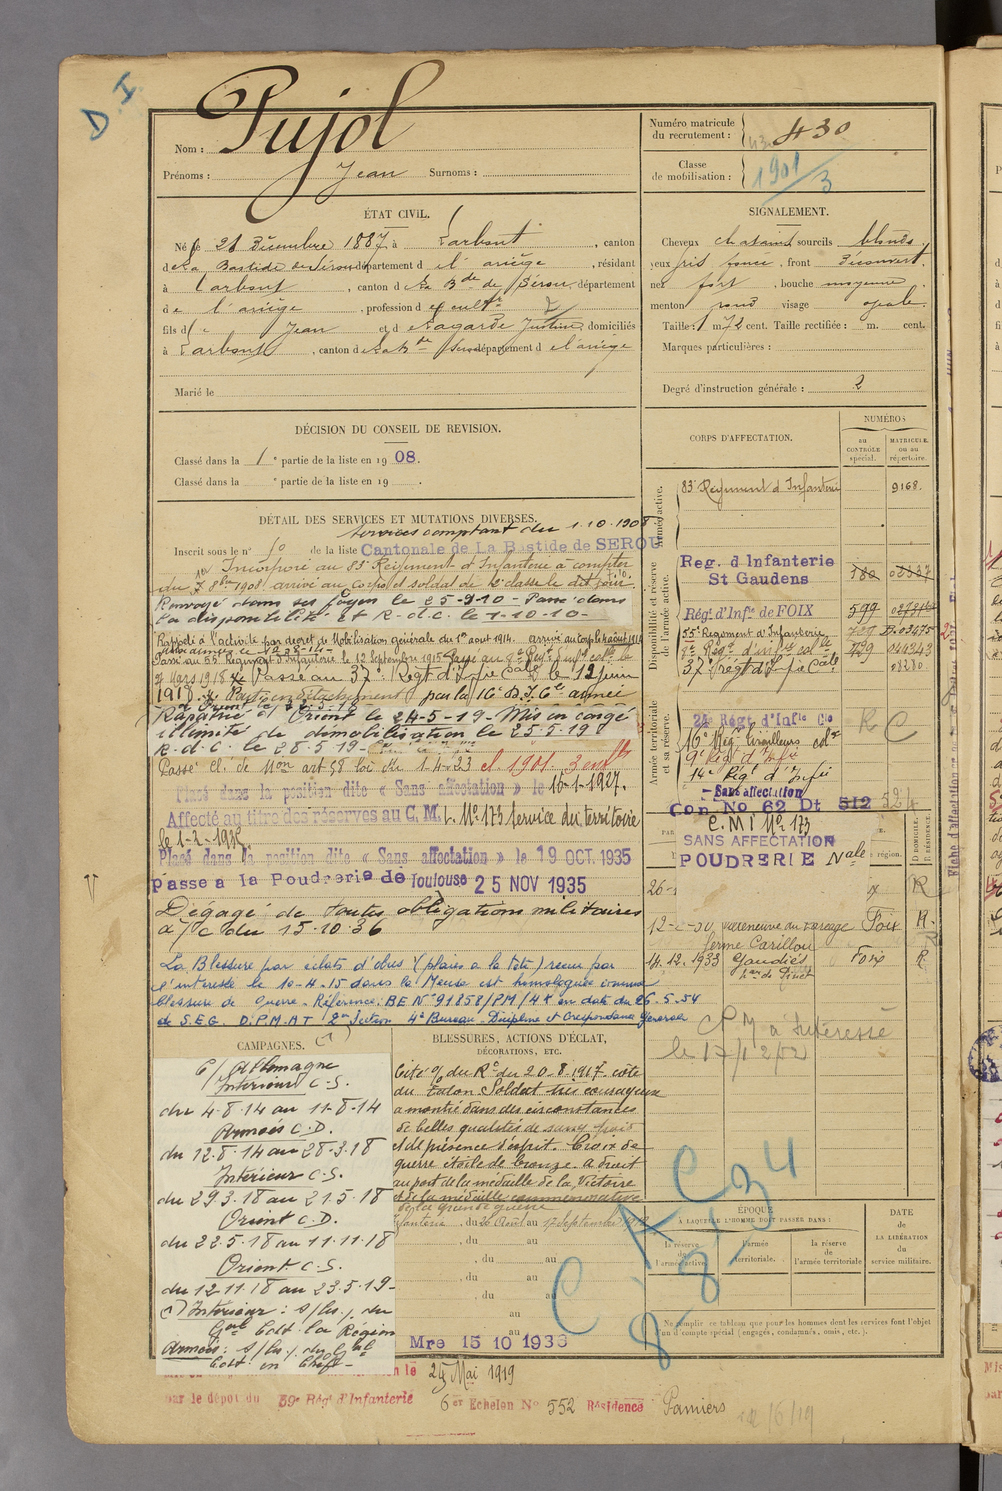 D. I.
Nom : Pujol
Prénoms : Jean Surnoms :
Numéro matricule du recrutement : 430
Classe de mobilisation : 1901/3
ÉTAT CIVIL.
Né le 21 Décembre 1887 à Larbont, canton
de La Bastide de Sérou département d el' ariège, résidant
à Larbont, canton de La Bde de Sérou, département
de l'ariège, profession d e cultr
fils de Jean et d e Lagarde Justine, domiciliés
à Larbont, canton de La Bde Serou département d el'ariège
Marié le
SIGNALEMENT.
Cheveux chatains sourcils blonds
yeux gris foncé, front Découvert
nez fort, bouche moyenne
menton rond visage ovale
Taille : 1 m 72 cent. Taille rectifiée : m. cent.
Marques particulières :
Degré d'instruction générale : 2
DÉCISION DU CONSEIL DE REVISION.
Classé dans la 1e partie de la liste en 1908.
Classé dans la e partie de la liste en 19 .
CORPS D'AFFECTATION.
NUMÉROS
au CONTRÔLE spécial.
MATRICULE ou au répertoire.
Armée active.
83e Régiment d'Infanterie 9168.
Disponibilité et réserve de l'armée active.
Reg. d Infanterie St Gaudens 180
Régt d'Infie de FOIX 599
55e Régiment d'Infanterie B.03475
8e Régt d'infie colle 044243
37e régt d'Infie Cale 08280
Armée territoriale et sa réserve.
24e Régt d'Infie Cle
R C
16e Régt tirailleurs colx
9e Régt d'Infie
14e Régt d'Infie
Sans affectation
Con No 62 Dt 512 524
C.M I No 173
SANS AFFECTATION
POUDRERIE Nale
DÉTAIL DES SERVICES ET MUTATIONS DIVERSES.
Services comptant du 1.10.1908
Inscrit sous le n° 10 de la liste Cantonale de La Bastide de SEROU
Incorporé au 83e Régiment d'Infanterie à compter
du 7 8bre 1908 arrivé au corps et soldat de 2e classe le dit jour.
Renvoyé dans ses foyers le 25-9-10 - Passé dans
la disponibilité et R.d.c. le 1-10-10-
Rappelé à l'activité par décret de Mobilisation Générale du 1er aout 1914. arrivé au corps le 4 août 1914
Passé au 55e Régiment d'Infanterie le 12 Septembre 1915 Passé au 8e Régt d'infie colle le
7 mars 1918 Passé au 37e Régt d'Infie Cale le 12 juin
1918. Parti en détachement par la 16e D.I.Ce armée
d'Orient le 22.5.18
Rapatrié d'Orient le 24-5-19- Mis en congé
illimité de démobilisation le 25.5.19
R.d.C. le 28-5-19-
Passé cl. de Mon art 58 loi du 1-4-23 cl. 1901. 3 enfts
Placé dans la position dite « Sans affectation » le 10-1-1927.
Affecté au titre des réserves au C. M. I. No 173 Service du territoire
Placé dans la position dite « Sans affectation » le 19 OCT. 1935
Passe a la Poudrerie de Toulouse 25 NOV 1935
Dégagé de toutes obligations militaires
a/c du 15-10-36
La Blessure par éclats d'obus (plaies a la tête) reçue par
l'interessé le 10-4-15 dans la Meuse est homologuée comme
blessure de Guerre - Référence : BE N° 91858/PM/4K en date du 26-5-54
de S.EG. D.P.M.A.T. 2me Section 4e Bureau - Discipline et Correspondance Generale
D DOMICILE. R RÉSIDENCE.
région.
26-1 R
Villeneuve du Paréage Foix R.
ferme Carillou
14.12.1933 Gaudiès Foix R
CPM à l'intéressé
le 17/12/52
CAMPAGNES.
C/ Allemagne
Intérieur C.S.
du 4-8-14 au 11-8-14
Armées C.D.
du 12-8-14 au 28-3-18
Intérieur C.S.
du 29.3.18 au 21.5.18
Orient C.D.
du 22.5.18 au 11.11.18
Orient C.S.
du 12.11.18 au 23.5.19-
BLESSURES, ACTIONS D'ÉCLAT,
DÉCORATIONS, ETC.
Cité o/ du Rt du 20.8.1917 côte
du Talon Soldat très courageux
a montré dans des circonstances
de belles qualités de sang froid
et de présence d'esprit. Croix de
guerre étoile de bronze. a droit
au port de la médaille de la Victoire
et de la médaille commémorative
de la grande guerre
du 26 Août au 17 Septembre
du au
du au
du au
du au
au
au
Mre 15 10 1936
C A C
8-8-34
ÉPOQUE
À LAQUELLE L'HOMME DOIT PASSER DANS :
la réserve de l'armée active
l'armée territoriale.
la réserve de l'armée territoriale
DATE de LA LIBÉRATION du service militaire.
Ne remplir ce tableau que pour les hommes dont les services font l'objet
d'un compte spécial (engagés, condamnés, omis, etc.).
le 25 Mai 1919
par le dépôt du 59e Régt d'Infanterie 6er Echelon No 552 Résidence Pamiers